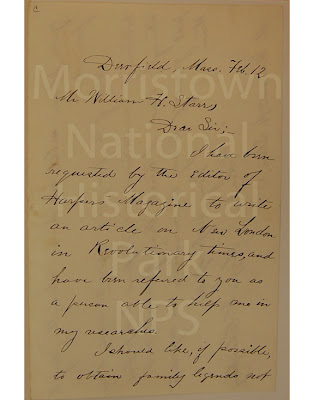 Deerfield, Mass. Feb. 12
Mr William H. Starr,
Dear Sir:-
I have been
requested by the Editor of
Harpers Magazine to write
an article on New London
in Revolutionary times, and
have been referred to you as
a person able to help me in
my researches.
I should like, if possible,
to obtain family legends not
Morristown
National
Historical
Park
NPS